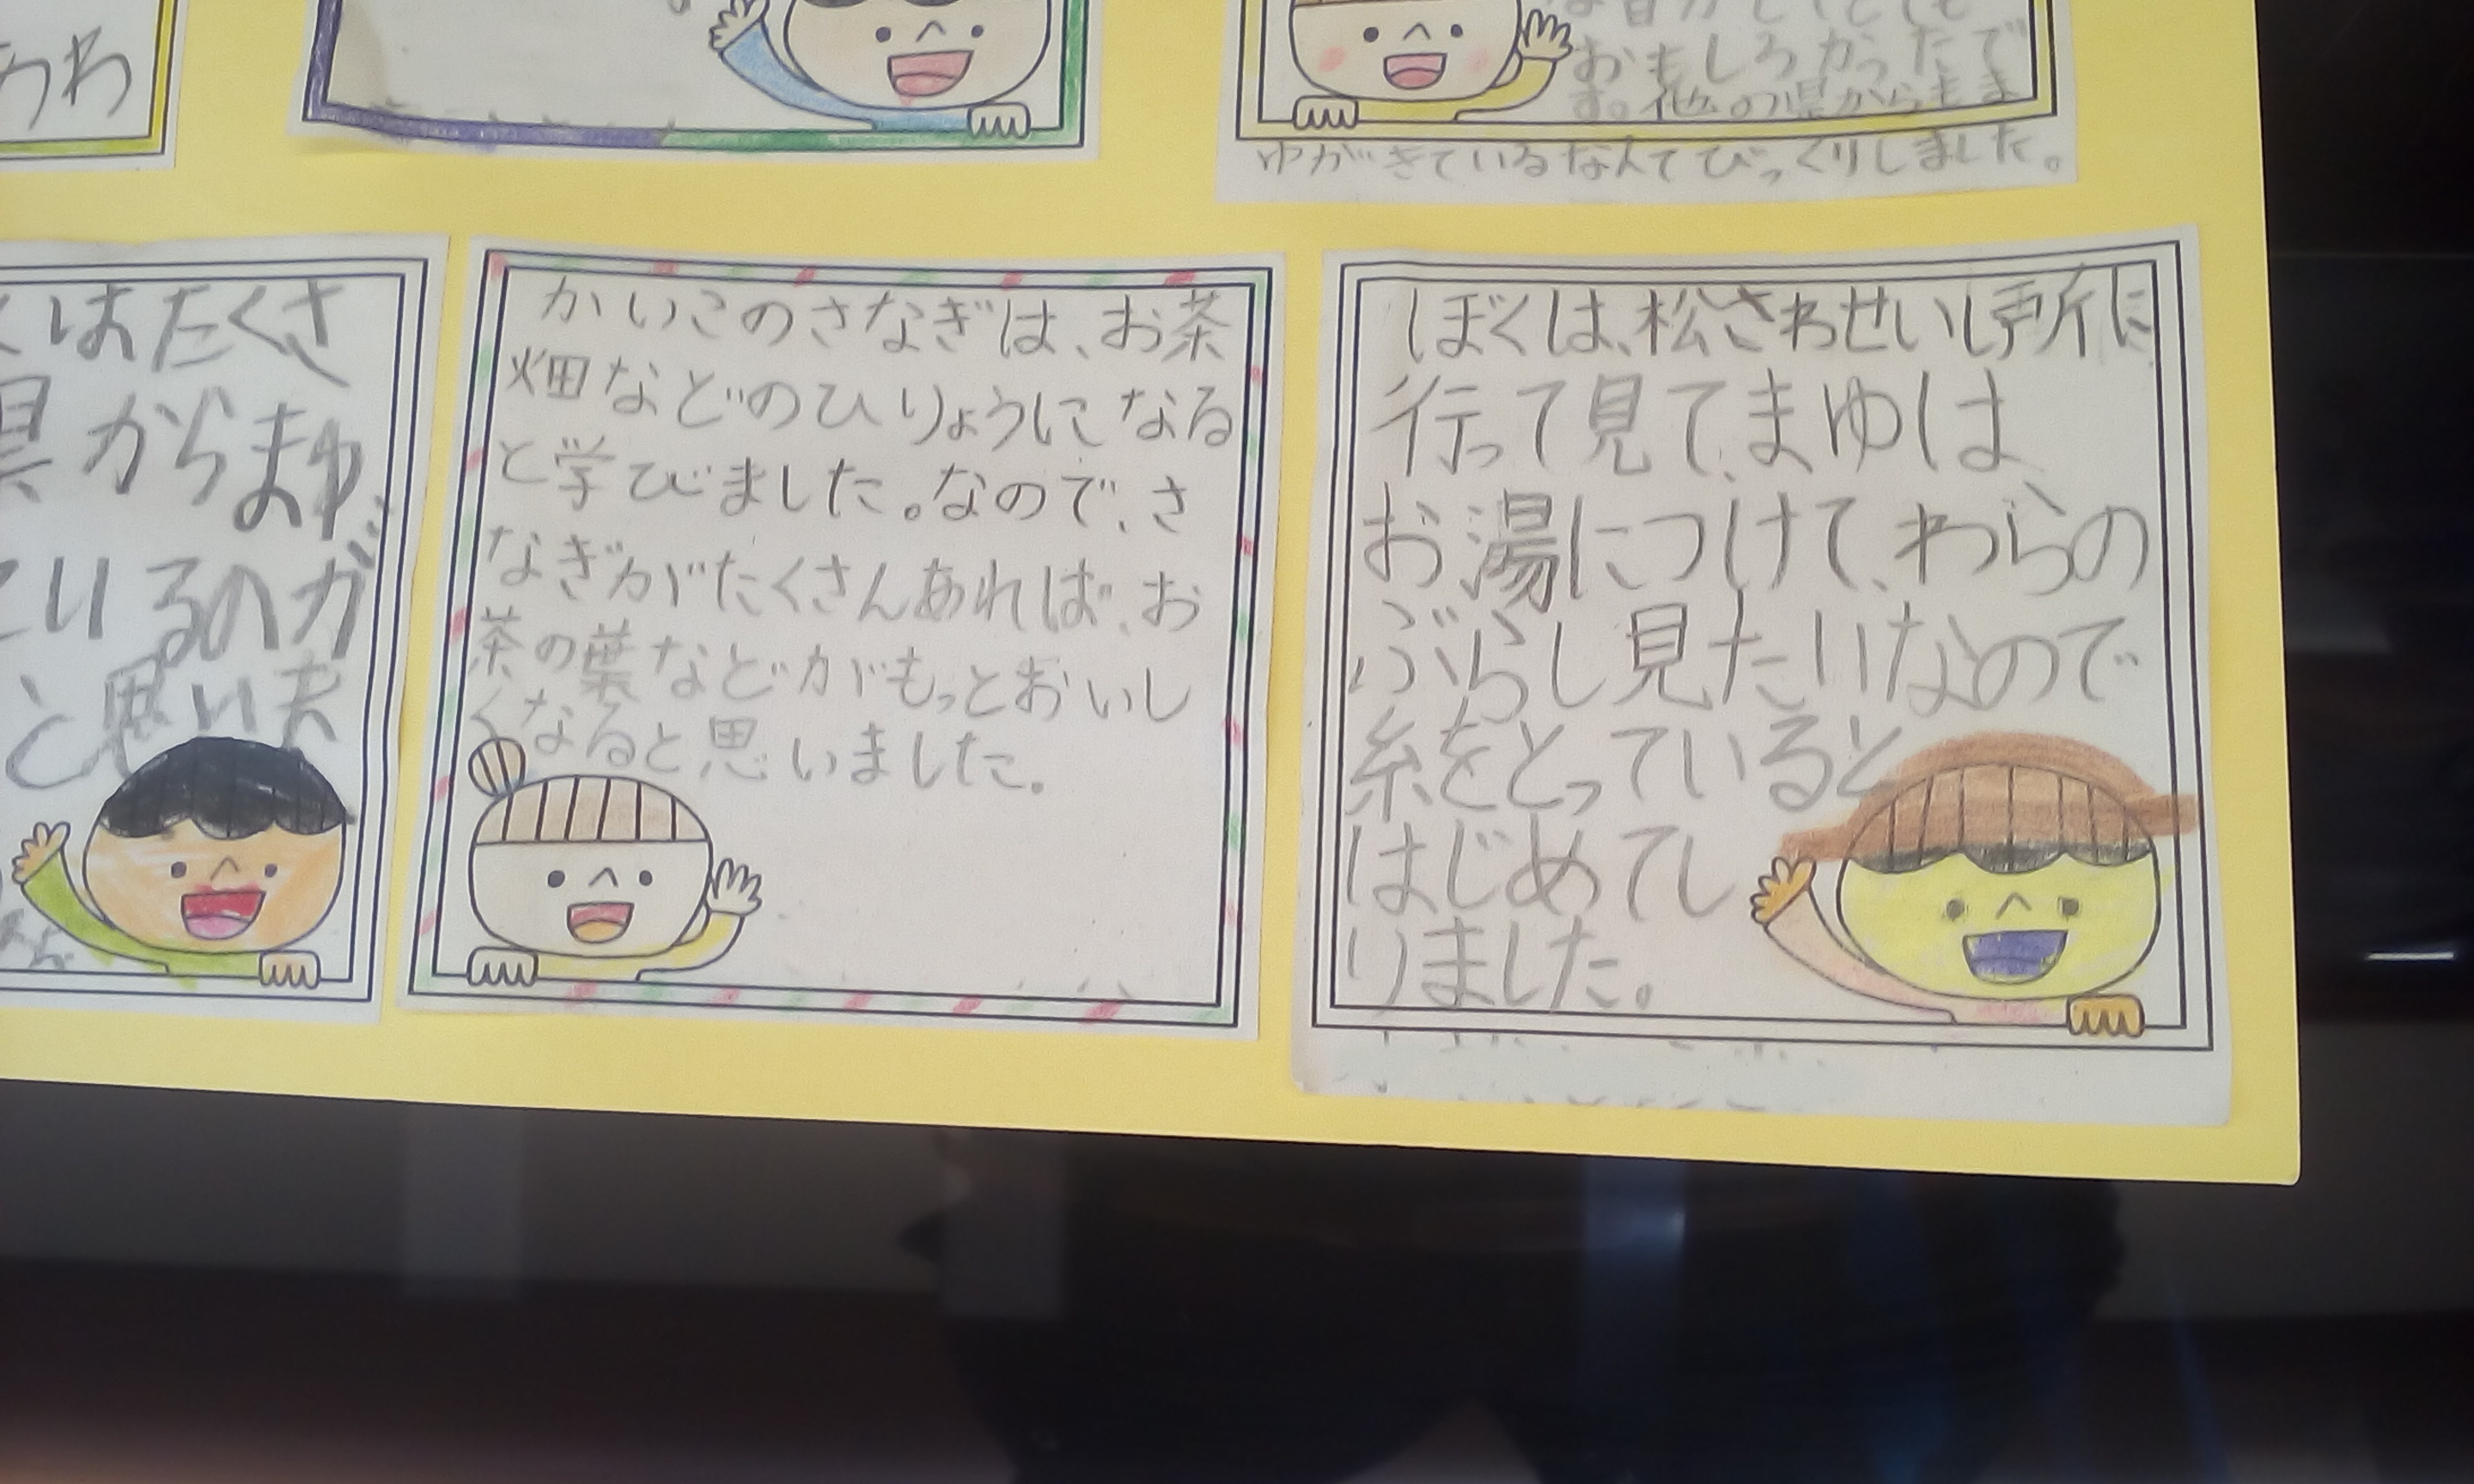 うわ
おもしろかったで
す。他の県からもま
ゆがきているなんてびっくりしました。
くはたくさ
県からまゆ
ているのが
と思いま
かいこのさなぎは、お茶
畑などのひりょうになる
と学びました。なので、さ
なぎがたくさんあれば、お
茶の葉などがもっとおいし
くなると思いました。
ぼくは、松さわせいし所に
行って見て、まゆは
お湯につけて、わらの
ぶらし見たいなので
糸をとっていると
はじめてし
りました。